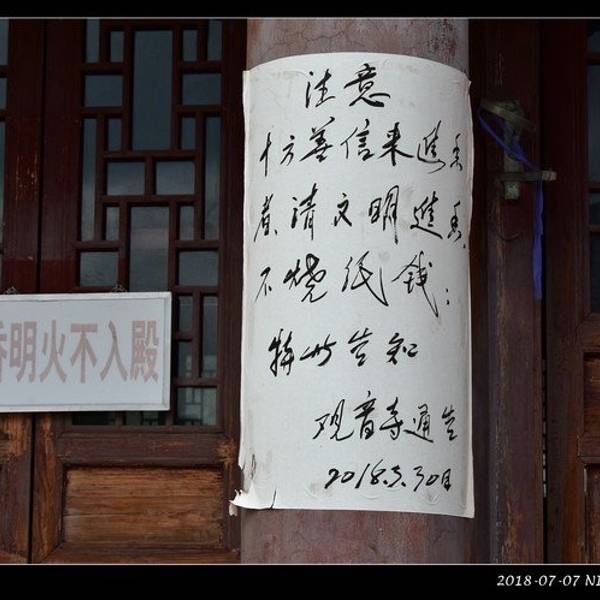 注意
十方善信来进香
者、请文明进香、
不烧纸钱;
特此告知
观音寺通告
2018.5.30日
香明火不入殿
2018-07-07 NI